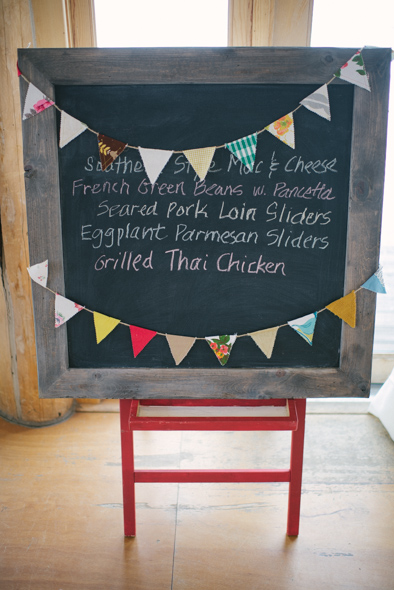 Southern Style Mac & Cheese
French Green Beans w. Pancetta
Seared Pork Loin Sliders
Eggplant Parmesan Sliders
Grilled Thai Chicken